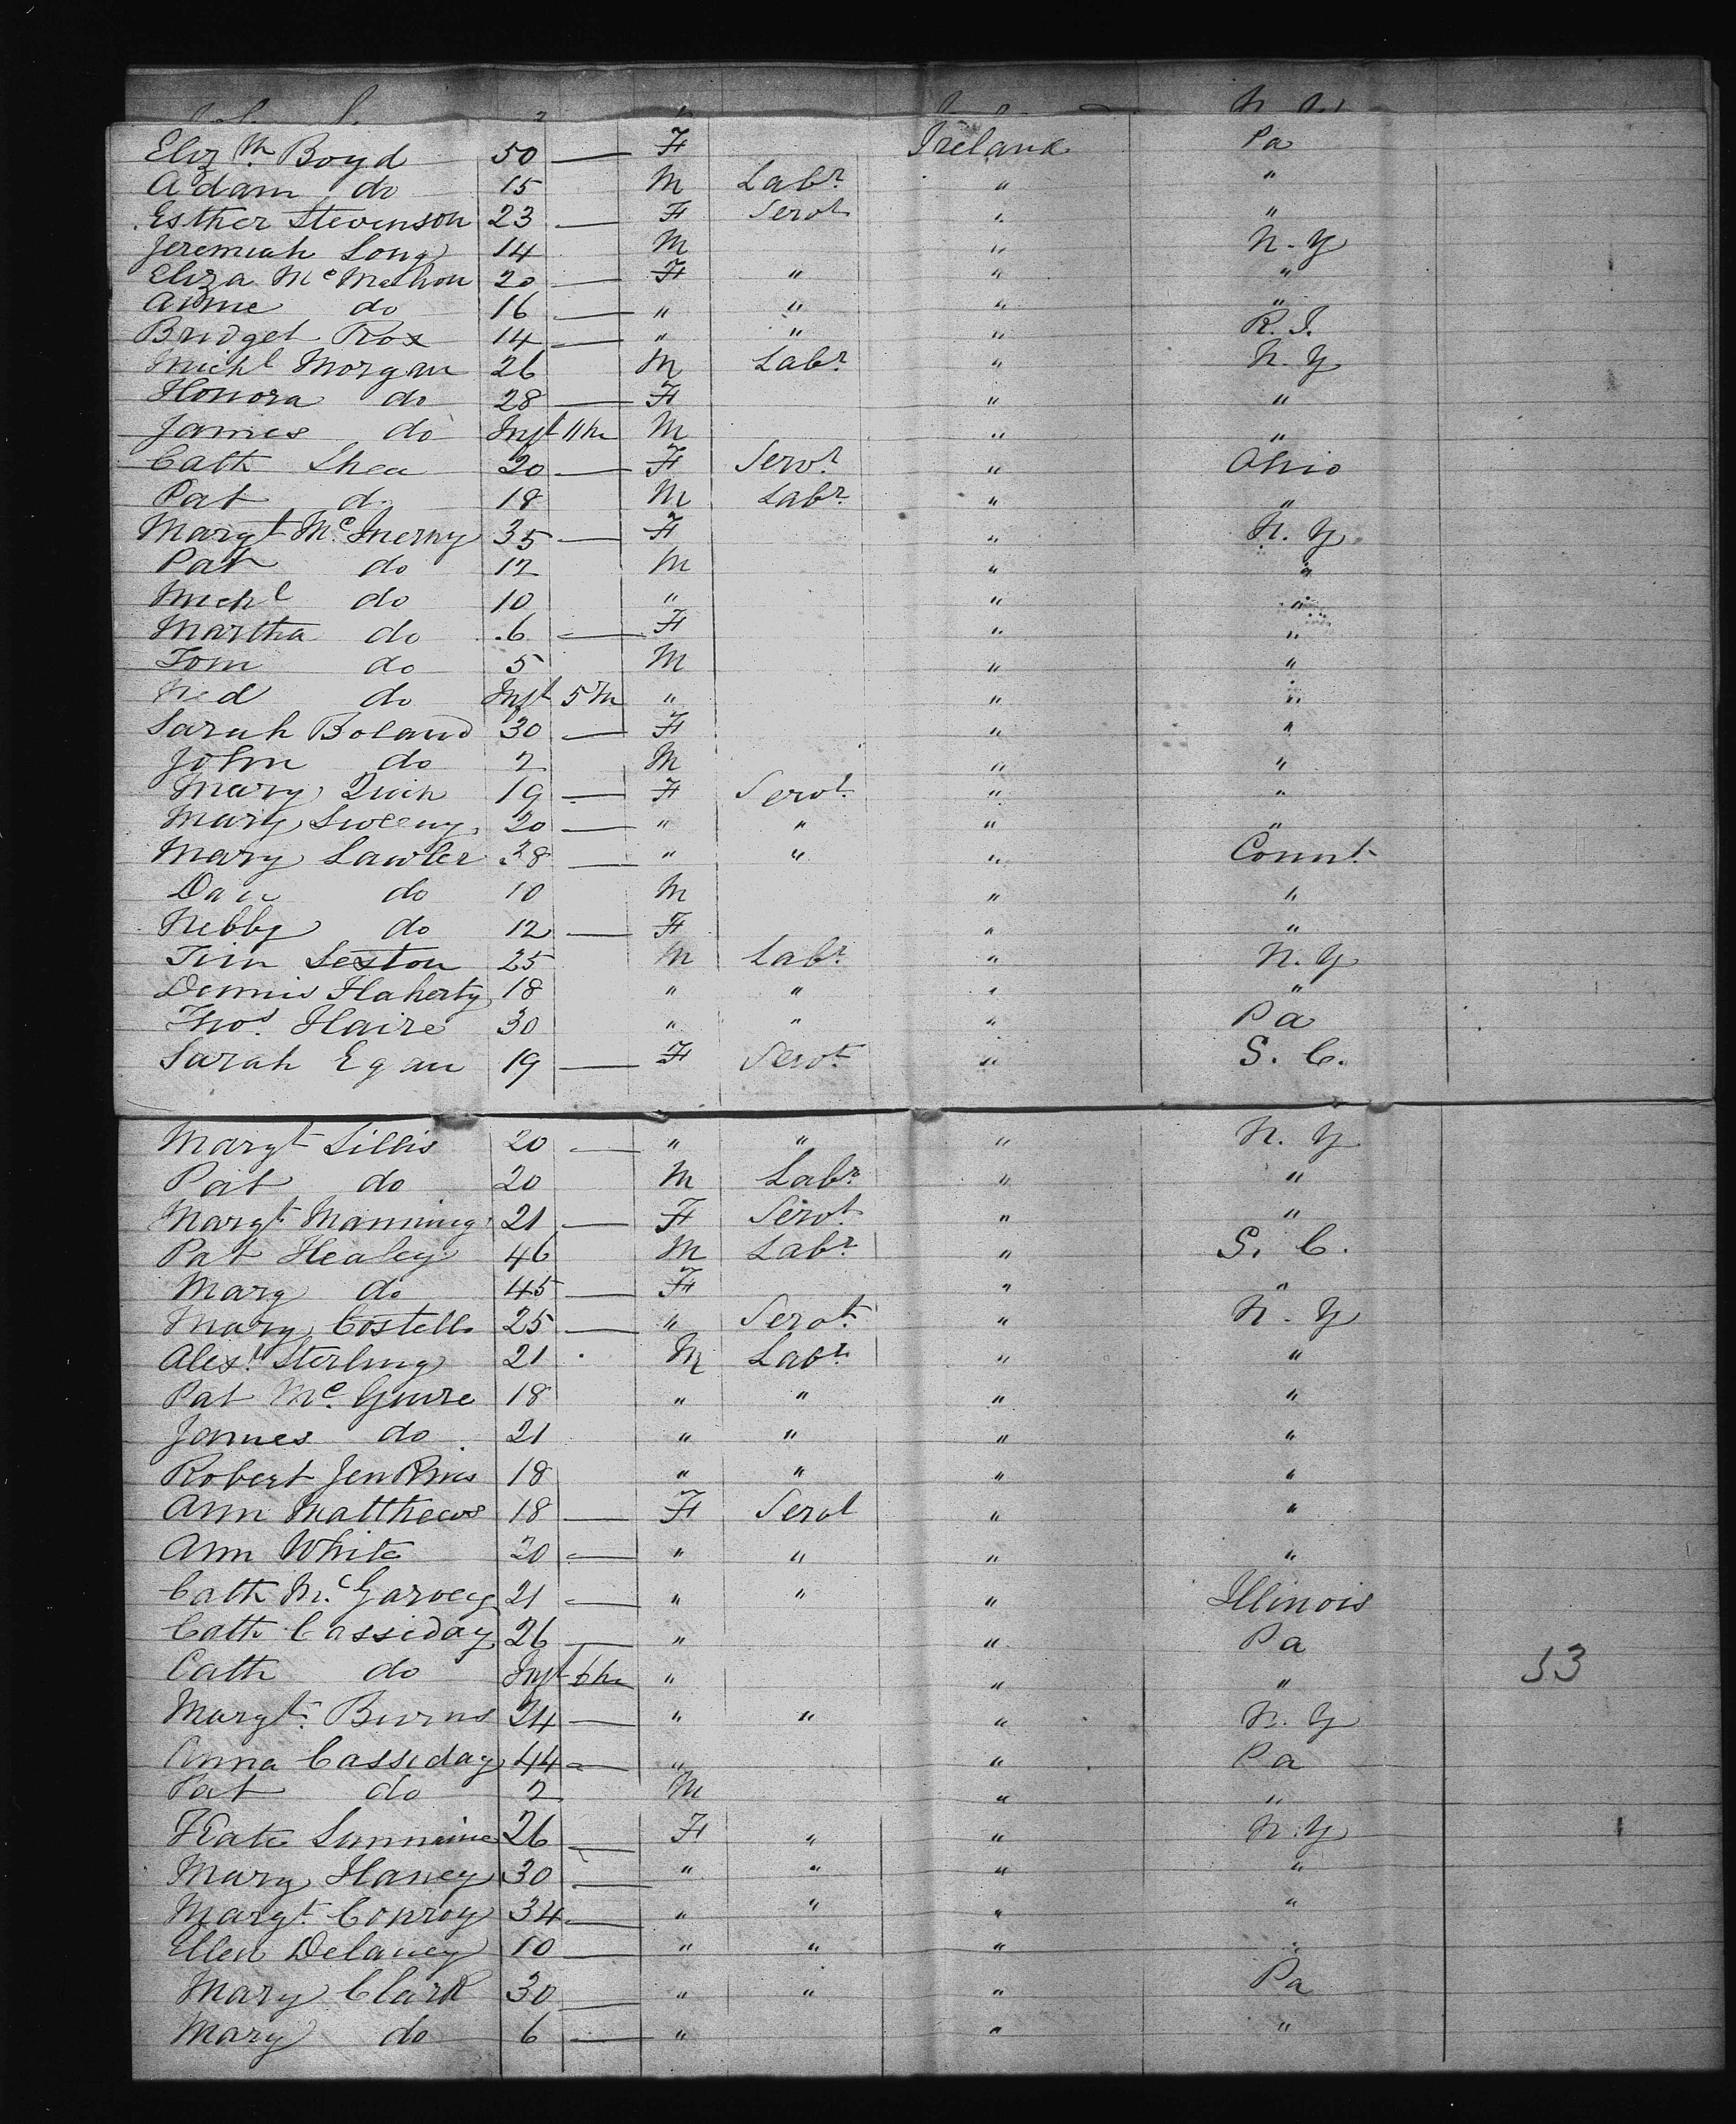 Elizth Boyd 50 — F Ireland Pa
Adam do 15 M Labr " "
Esther Stevenson 23 — F Servt " "
Jeremiah Long 14 M " N. Y
Eliza McMahon 20 — F " " "
Anne do 16 — " " " "
Bridget Fox 14 — " " " R. I.
Michl Morgan 26 M Labr " N. Y
Honora do 28 — F " "
James do Inft 11 m M " "
Cath Shea 20 — F Servt " Ohio
Pat do 18 M Labr " "
Margt McInerny 35 — F " N. Y
Pat do 12 M " "
Michl do 10 " " "
Martha do 6 — F " "
Tom do 5 M " "
Ned do Inft 5 m " " "
Sarah Boland 30 — F " "
John do 2 M " "
Mary Quin 19 — F Servt " "
Mary Sweeny 20 — " " " "
Mary Lawler 38 — " " " Connt
Dan do 10 M " "
Nebby do 12 — F " "
Tim Sexton 25 M Labr " N. Y
Dennis Flaherty 18 " " " "
Thos Haire 30 " " " Pa
Sarah Egan 19 — F Servt " S. C.
Margt Lillis 20 — " " " N. Y
Pat do 20 M Labr " "
Margt Manning 21 — F Servt " "
Pat Healey 46 M Labr " S. C.
Mary do 45 — F " "
Mary Costello 25 — " Servt " N. Y
Alexr Sterling 21 M Labr " "
Pat McGuire 18 " " " "
James do 21 " " " "
Robert Jenkins 18 " " " "
Ann Matthews 18 — F Servt " "
Ann White 20 — " " " "
Cath McGarvey 21 — " " " Illinois
Cath Cassiday 26 — " " Pa
Cath do Inft 6 m " " " 53
Margt Burns 24 — " " " N. Y
Anna Cassiday 44 — " " Pa
Pat do 2 M " "
Kate 26 — F " " N. Y
Mary Haney 30 — " " " "
Margt Conroy 34 — " " " "
Ellen Delaney 10 — " " " "
Mary Clark 30 — " " " Pa
Mary do 6 — " " "